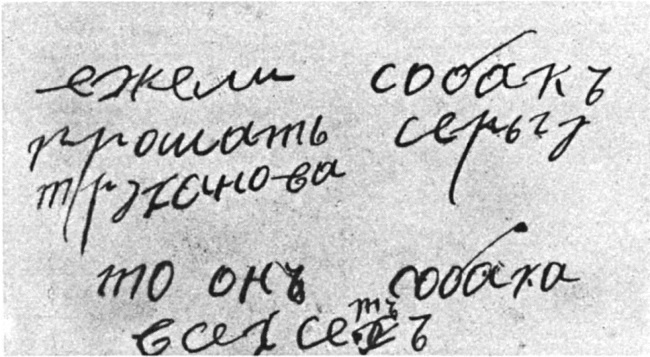 ежели собакъ
ррошать серьгу
труханова
то онъ собака
всех сетъ